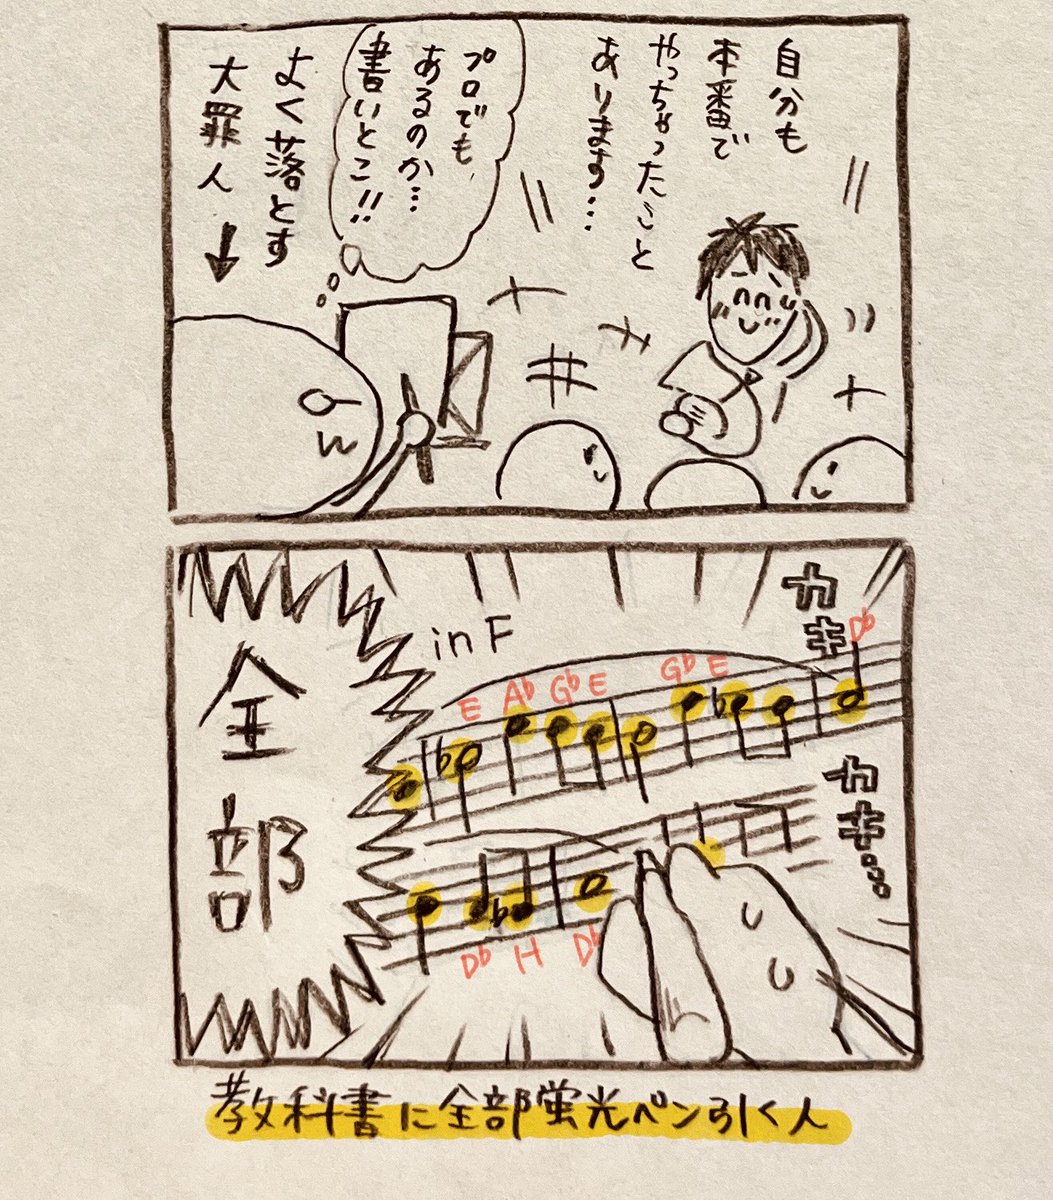 自分も
本番で
やっちゃったこと
あります…
プロでも
あるのか…
書いとこ!!
よく落とす
大罪人↓
カキ
カキ…
in F
E A♭ G♭ E G♭ E D♭
D♭ H D♭
全部
教科書に全部蛍光ペン引く人